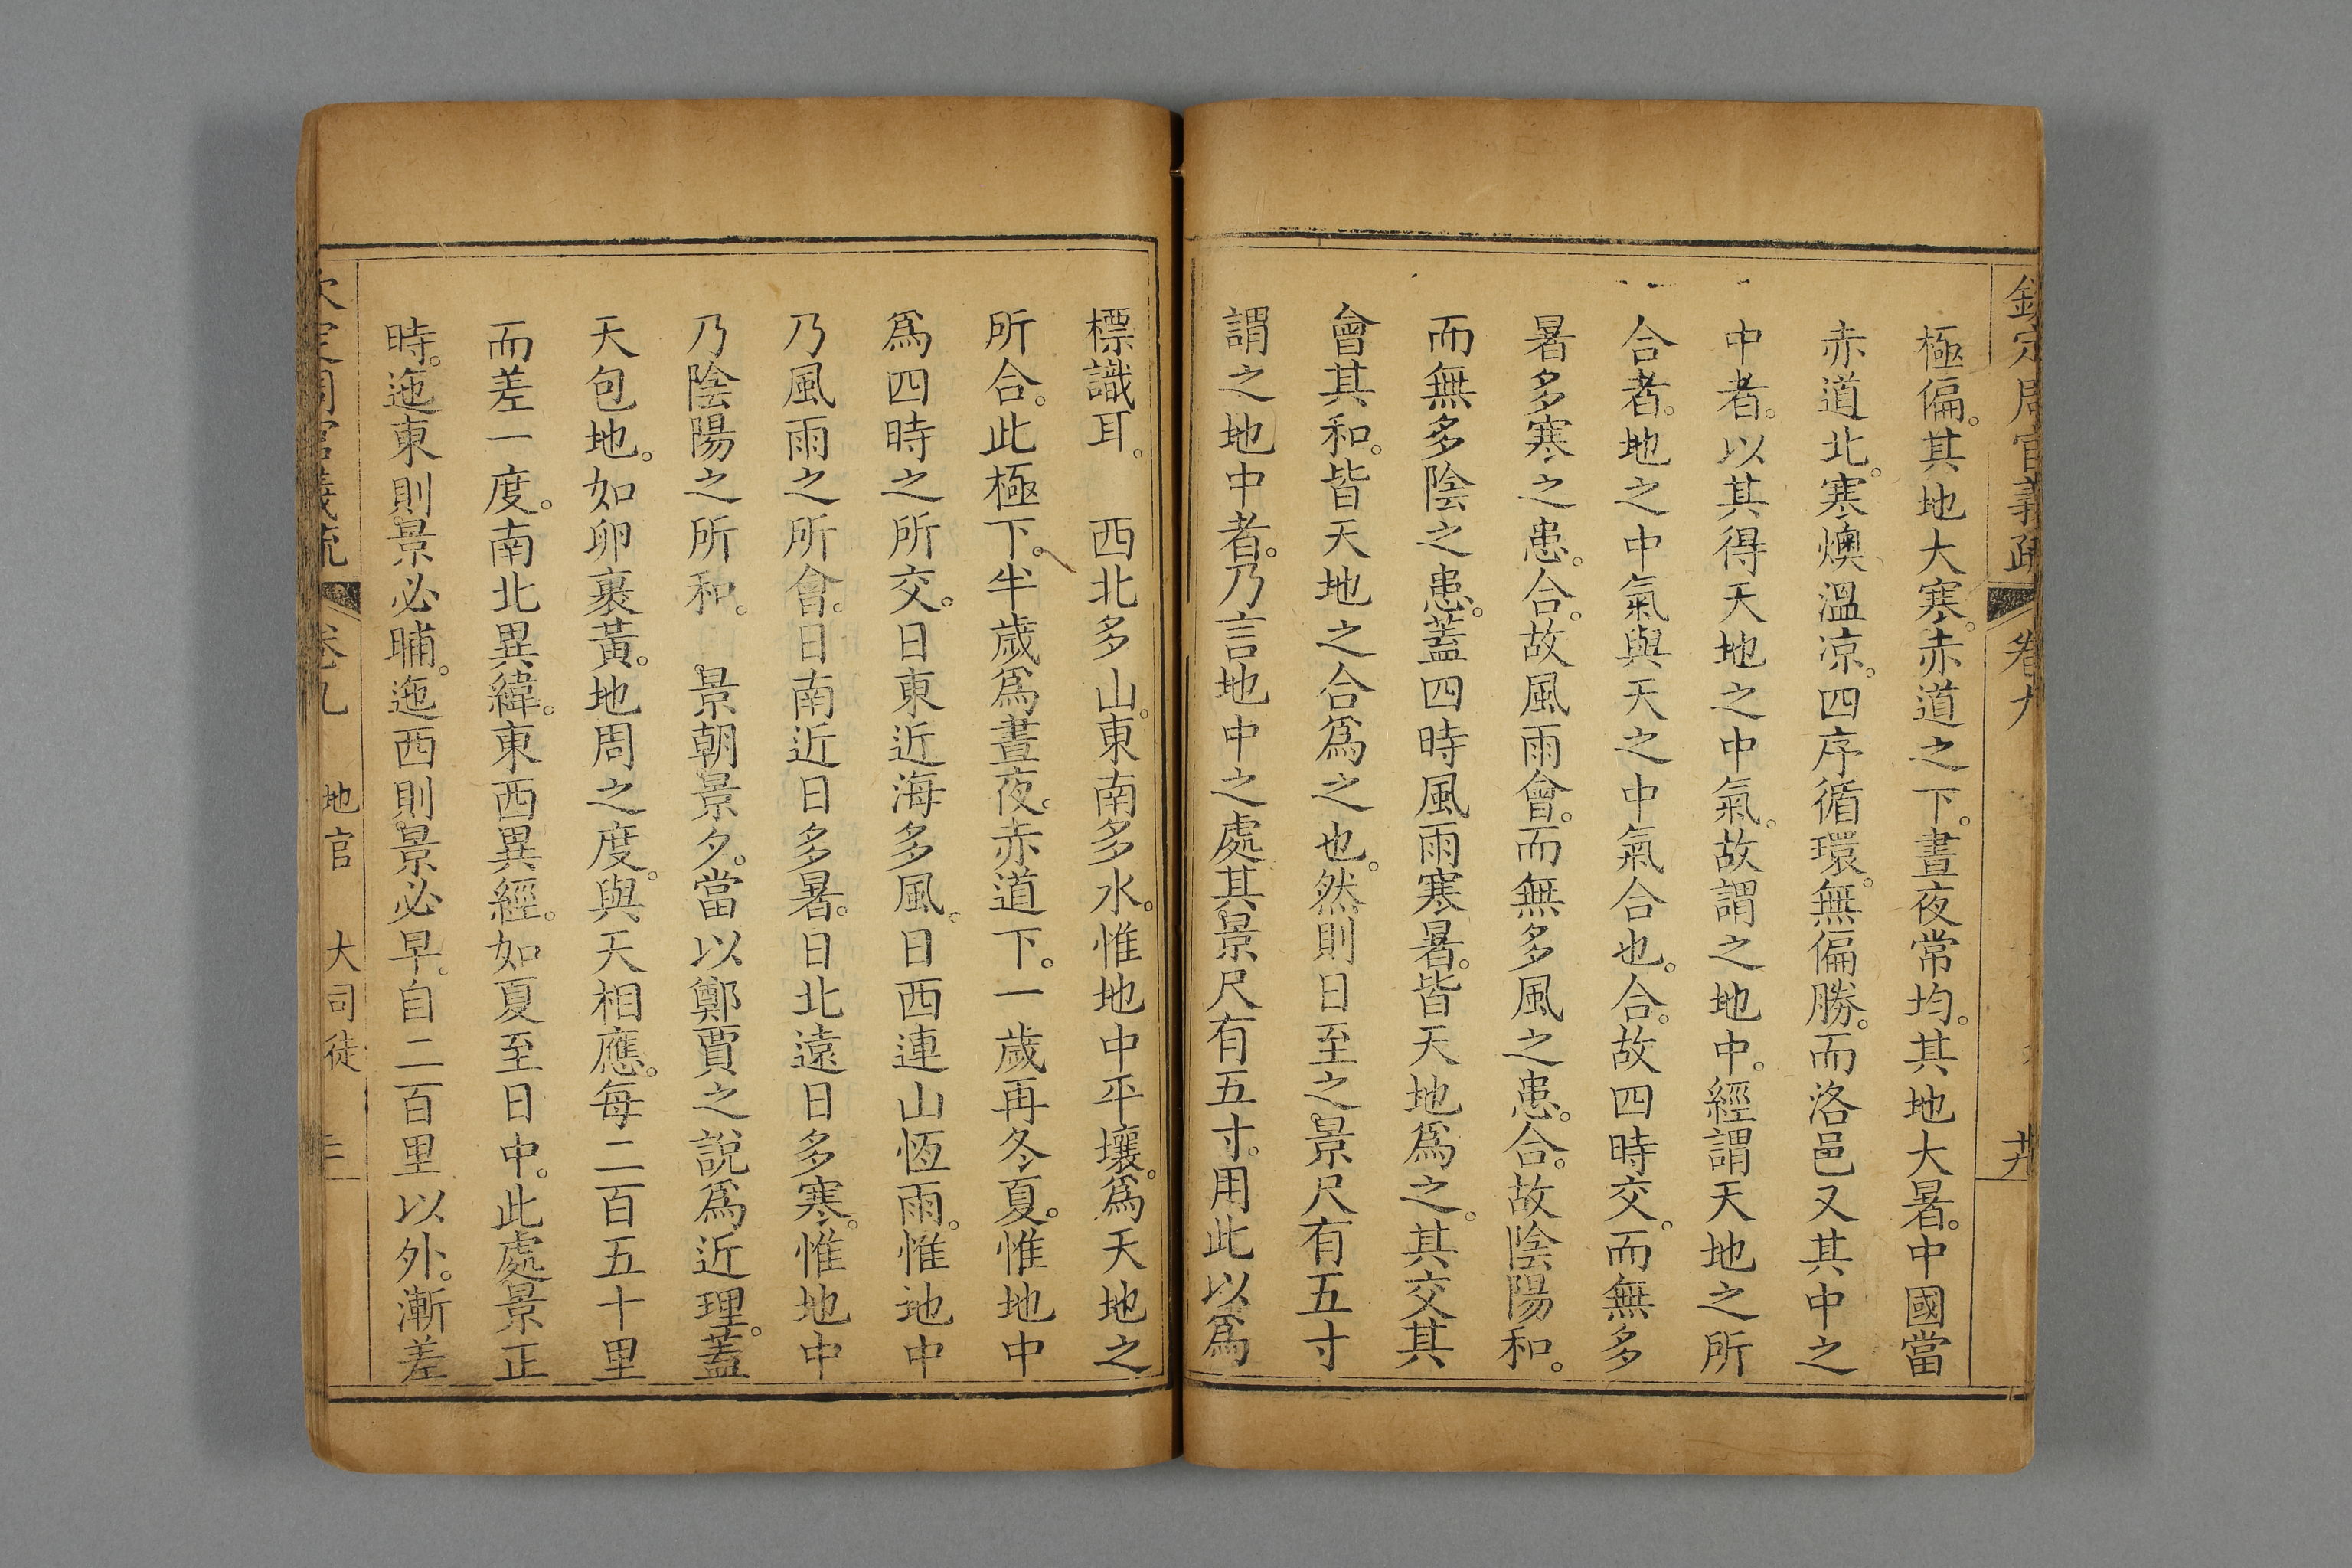 欽定周官義疏 卷九 卅
極偏。其地大寒。赤道之下。晝夜常均。其地大暑。中國當
赤道北。寒燠溫凉。四序循環。無偏勝。而洛邑又其中之
中者。以其得天地之中氣。故謂之地中。經謂天地之所
合者。地之中氣與天之中氣合也。合。故四時交。而無多
暑多寒之患。合。故風雨會。而無多風之患。合。故陰陽和。
而無多陰之患。蓋四時風雨寒暑。皆天地爲之。其交其
會其和。皆天地之合爲之也。然則日至之景尺有五寸
謂之地中者。乃言地中之處其景尺有五寸。用此以爲
標識耳。　西北多山。東南多水。惟地中平壤。爲天地之
所合。此極下。半歲爲晝夜。赤道下。一歲再冬夏。惟地中
爲四時之所交。日東近海多風。日西連山恆雨。惟地中
乃風雨之所會。日南近日多暑。日北遠日多寒。惟地中
乃陰陽之所和。　景朝景夕。當以鄭賈之說爲近理。蓋
天包地。如卵裹黃。地周之度。與天相應。每二百五十里
而差一度。南北異緯。東西異經。如夏至日中。此處景正
時。迤東則景必晡。迤西則景必早。自二百里以外。漸差
欽定周官義疏 卷九 地官 大司徒